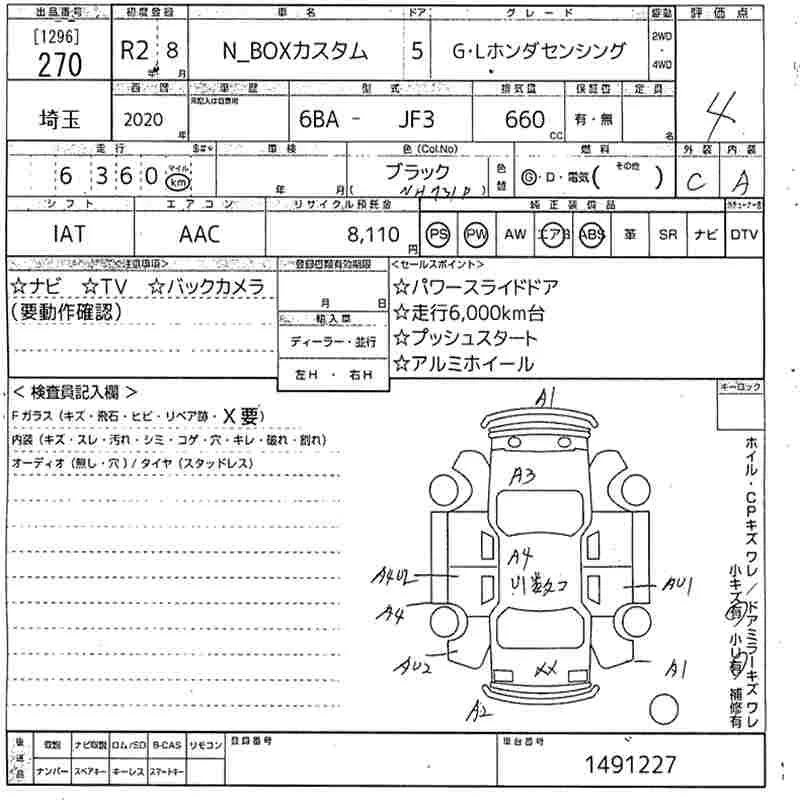 出品番号 初度登録 車名 ドア グレード 駆動 評価点
[1296] 270 R2 年 8 月 N_BOXカスタム 5 G・Lホンダセンシング 2WD・4WD
西暦 車歴 型式 排気量 保証書 定員
埼玉 2020 年 6BA - JF3 660 CC 有・無 名 4
走行 車検 色(Col.No) 燃料 外装 内装
6 3 6 0 マイル km 年 月 ブラック (NH731P) 色替 G・D・電気( その他 ) C A
シフト エアコン リサイクル預託金 純正装備品
IAT AAC 8,110 円 PS PW AW エアB ABS 革 SR ナビ DTV
注意事項> 登録書類有効期限 <セールスポイント>
☆ナビ ☆TV ☆バックカメラ 月 日 ☆パワースライドドア
(要動作確認) 輸入車 ☆走行6,000km台
ディーラー・並行 ☆プッシュスタート
左H ・ 右H ☆アルミホイール
< 検査員記入欄 > キーロック
Fガラス (キズ・飛石・ヒビ・リペア跡・X要)
内装 (キズ・スレ・汚れ・シミ・コゲ・穴・キレ・破れ・割れ)
オーディオ (無し・穴) / タイヤ (スタッドレス)
A1
A3
A4
A4U2
AU1
A4
AU2
XX
A1
A2
ホイル・CPキズ ワレ / ドアミラーキズ ワレ
小キズ有 小U有 補修有
後送品 取説 ナビ取説 ロム/SD B-CAS リモコン 登録番号 車台番号
ナンバー スペアキー キーレス スマートキー 1491227